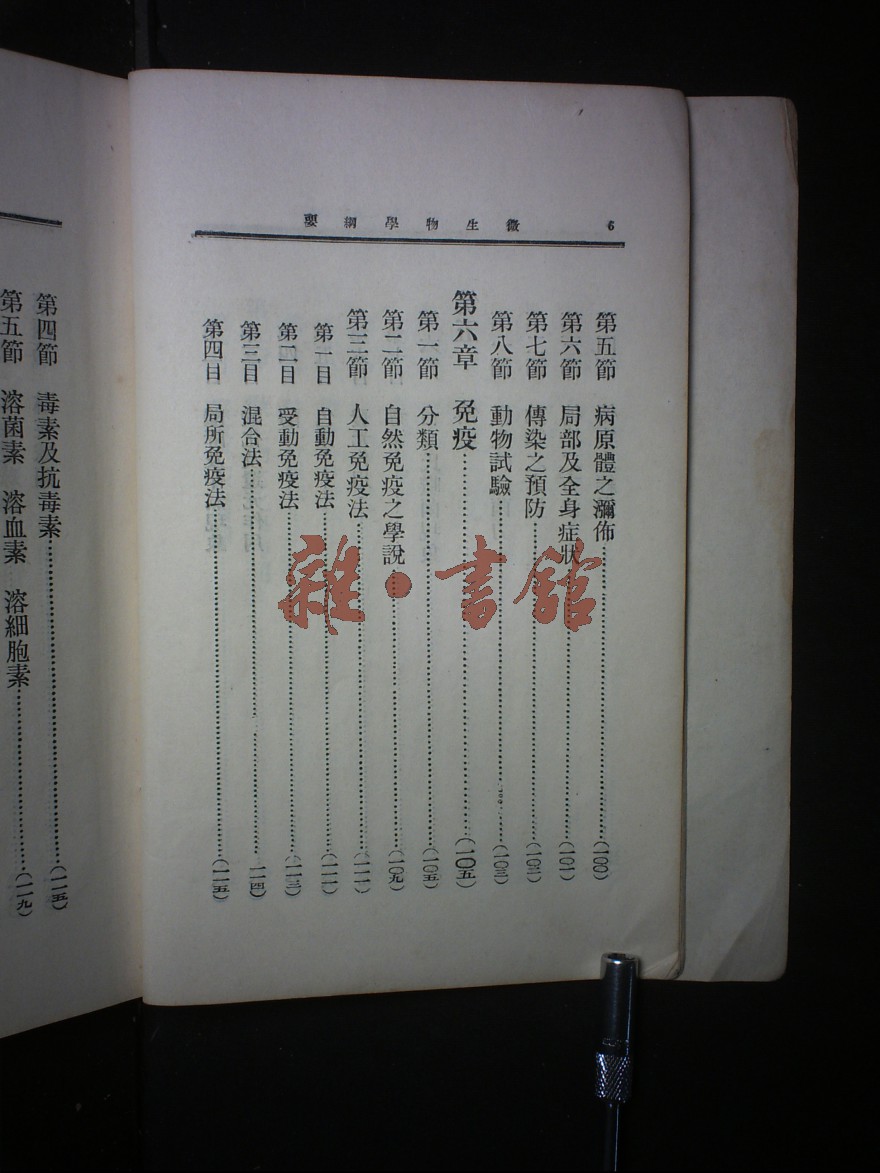 6 微生物學綱要
第五節 病原體之瀰佈……(一〇〇)
第六節 局部及全身症狀……(一〇一)
第七節 傳染之預防……(一〇二)
第八節 動物試驗……(一〇三)
第六章 免疫……(一〇五)
第一節 分類……(一〇五)
第二節 自然免疫之學說……(一〇九)
第三節 人工免疫法……(一一一)
第一目 自動免疫法……(一一一)
第二目 受動免疫法……(一一三)
第三目 混合法……(一一四)
第四目 局所免疫法……(一一五)
第四節 毒素及抗毒素……(一一五)
第五節 溶菌素 溶血素 溶細胞素……(一一九)
雜·書館